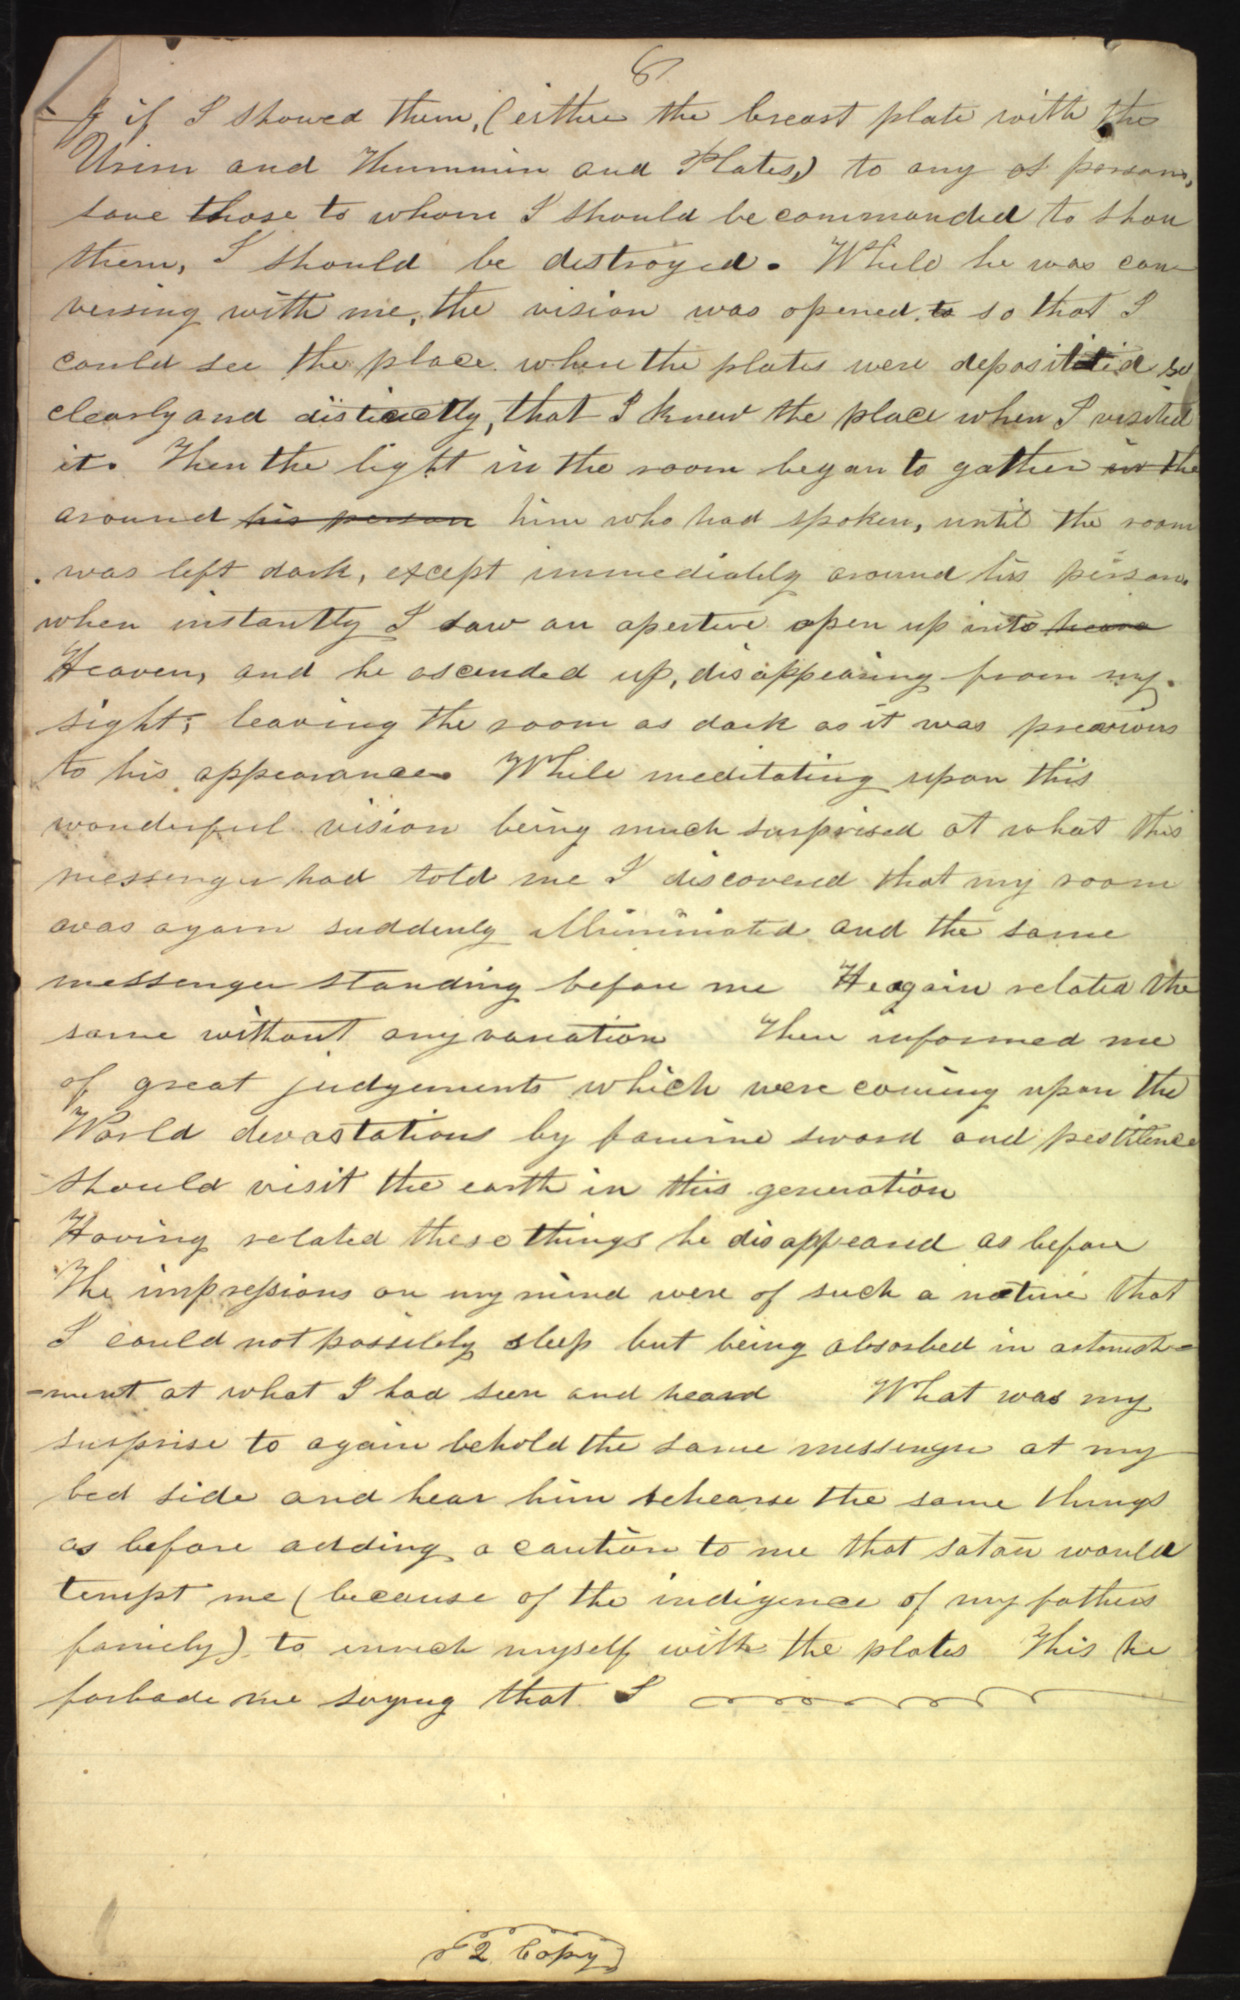 8
& if I showed them, (either the breast plate with the
Urim and Thummim and Plates,) to any of person,
save those to whom I should be commanded to show
them, I should be destroyed. While he was con
versing with me, the vision was opened to so that I
could see the place where the plates were deposited so
clearly and distinctly, that I knew the place when I visited
it. Then the light in the room began to gather in the
around his person him who had spoken, until the room
was left dark, except immediately around his person.
when instantly I saw an aperture open up into heave
Heaven, and he ascended up, disappearing from my
sight; leaving the room as dark as it was previous
to his appearance. While meditating upon this
wonderful vision being much surprised at what this
messenger had told me I discovered that my room
was again suddenly illuminated and the same
messenger standing before me He again related the
same without any variation Then informed me
of great judgements which were coming upon the
World devastations by famine sword and pestilence
should visit the earth in this generation
Having related these things he disappeared as before
The impressions on my mind were of such a nature that
I could not possibly sleep but being absorbed in astonish=
=ment at what I had seen and heard What was my
surprise to again behold the same messenger at my
bed side and hear him rehearse the same things
as before adding a caution to me that satan would
tempt me (because of the indigence of my fathers
family) to enrich myself with the plates This he
forbade me saying that I
2 Copy